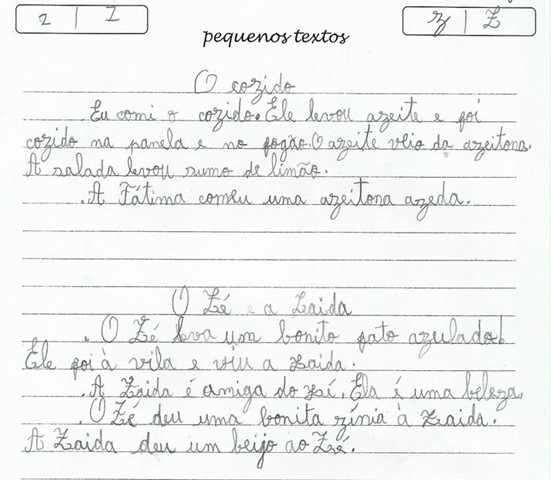 z | Z
z | Z
pequenos textos
O cozido
Eu comi o cozido. Ele levou azeite e foi
cozido na panela e no fogão. O azeite veio da azeitona.
A salada levou sumo de limão.
.A Fátima comeu uma azeitona azeda.
O Zé e a Zaida
. O Zé leva um bonito fato azulado!
Ele foi à vila e viu a zaida.
.A Zaida é amiga do Zé. Ela é uma beleza.
.O Zé deu uma bonita zínia à Zaida.
A Zaida deu um beijo ao Zé.